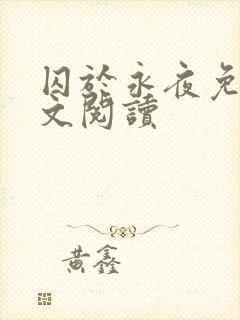 囚於永夜免
文閱讀
黃鑫